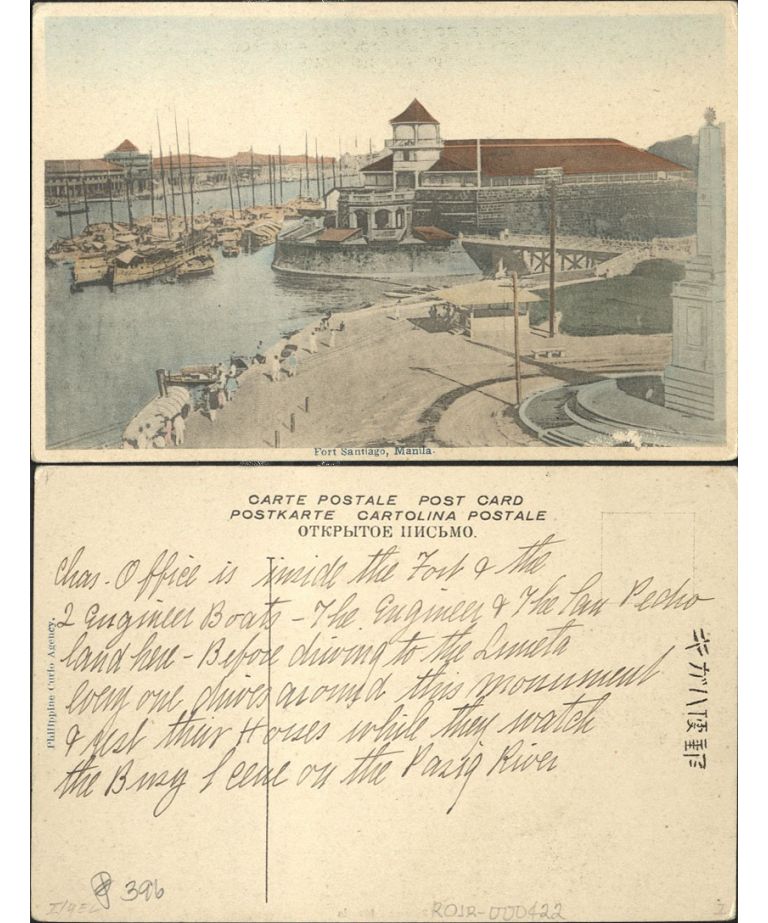 Fort Santiago, Manila.
CARTE POSTALE POST CARD
POSTKARTE CARTOLINA POSTALE
ОТКРЫТОЕ ПИСЬМО.
Chas. Office is inside the Fort & the
2 Engineer Boats - The Engineer & The San Pedro
land here - Before driving to the Luneta
every one drives around this monument
& rest their Horses while they watch
the Busy Scene on the Pasig River
Philippine Curio Agency.
396
ROJR-000422